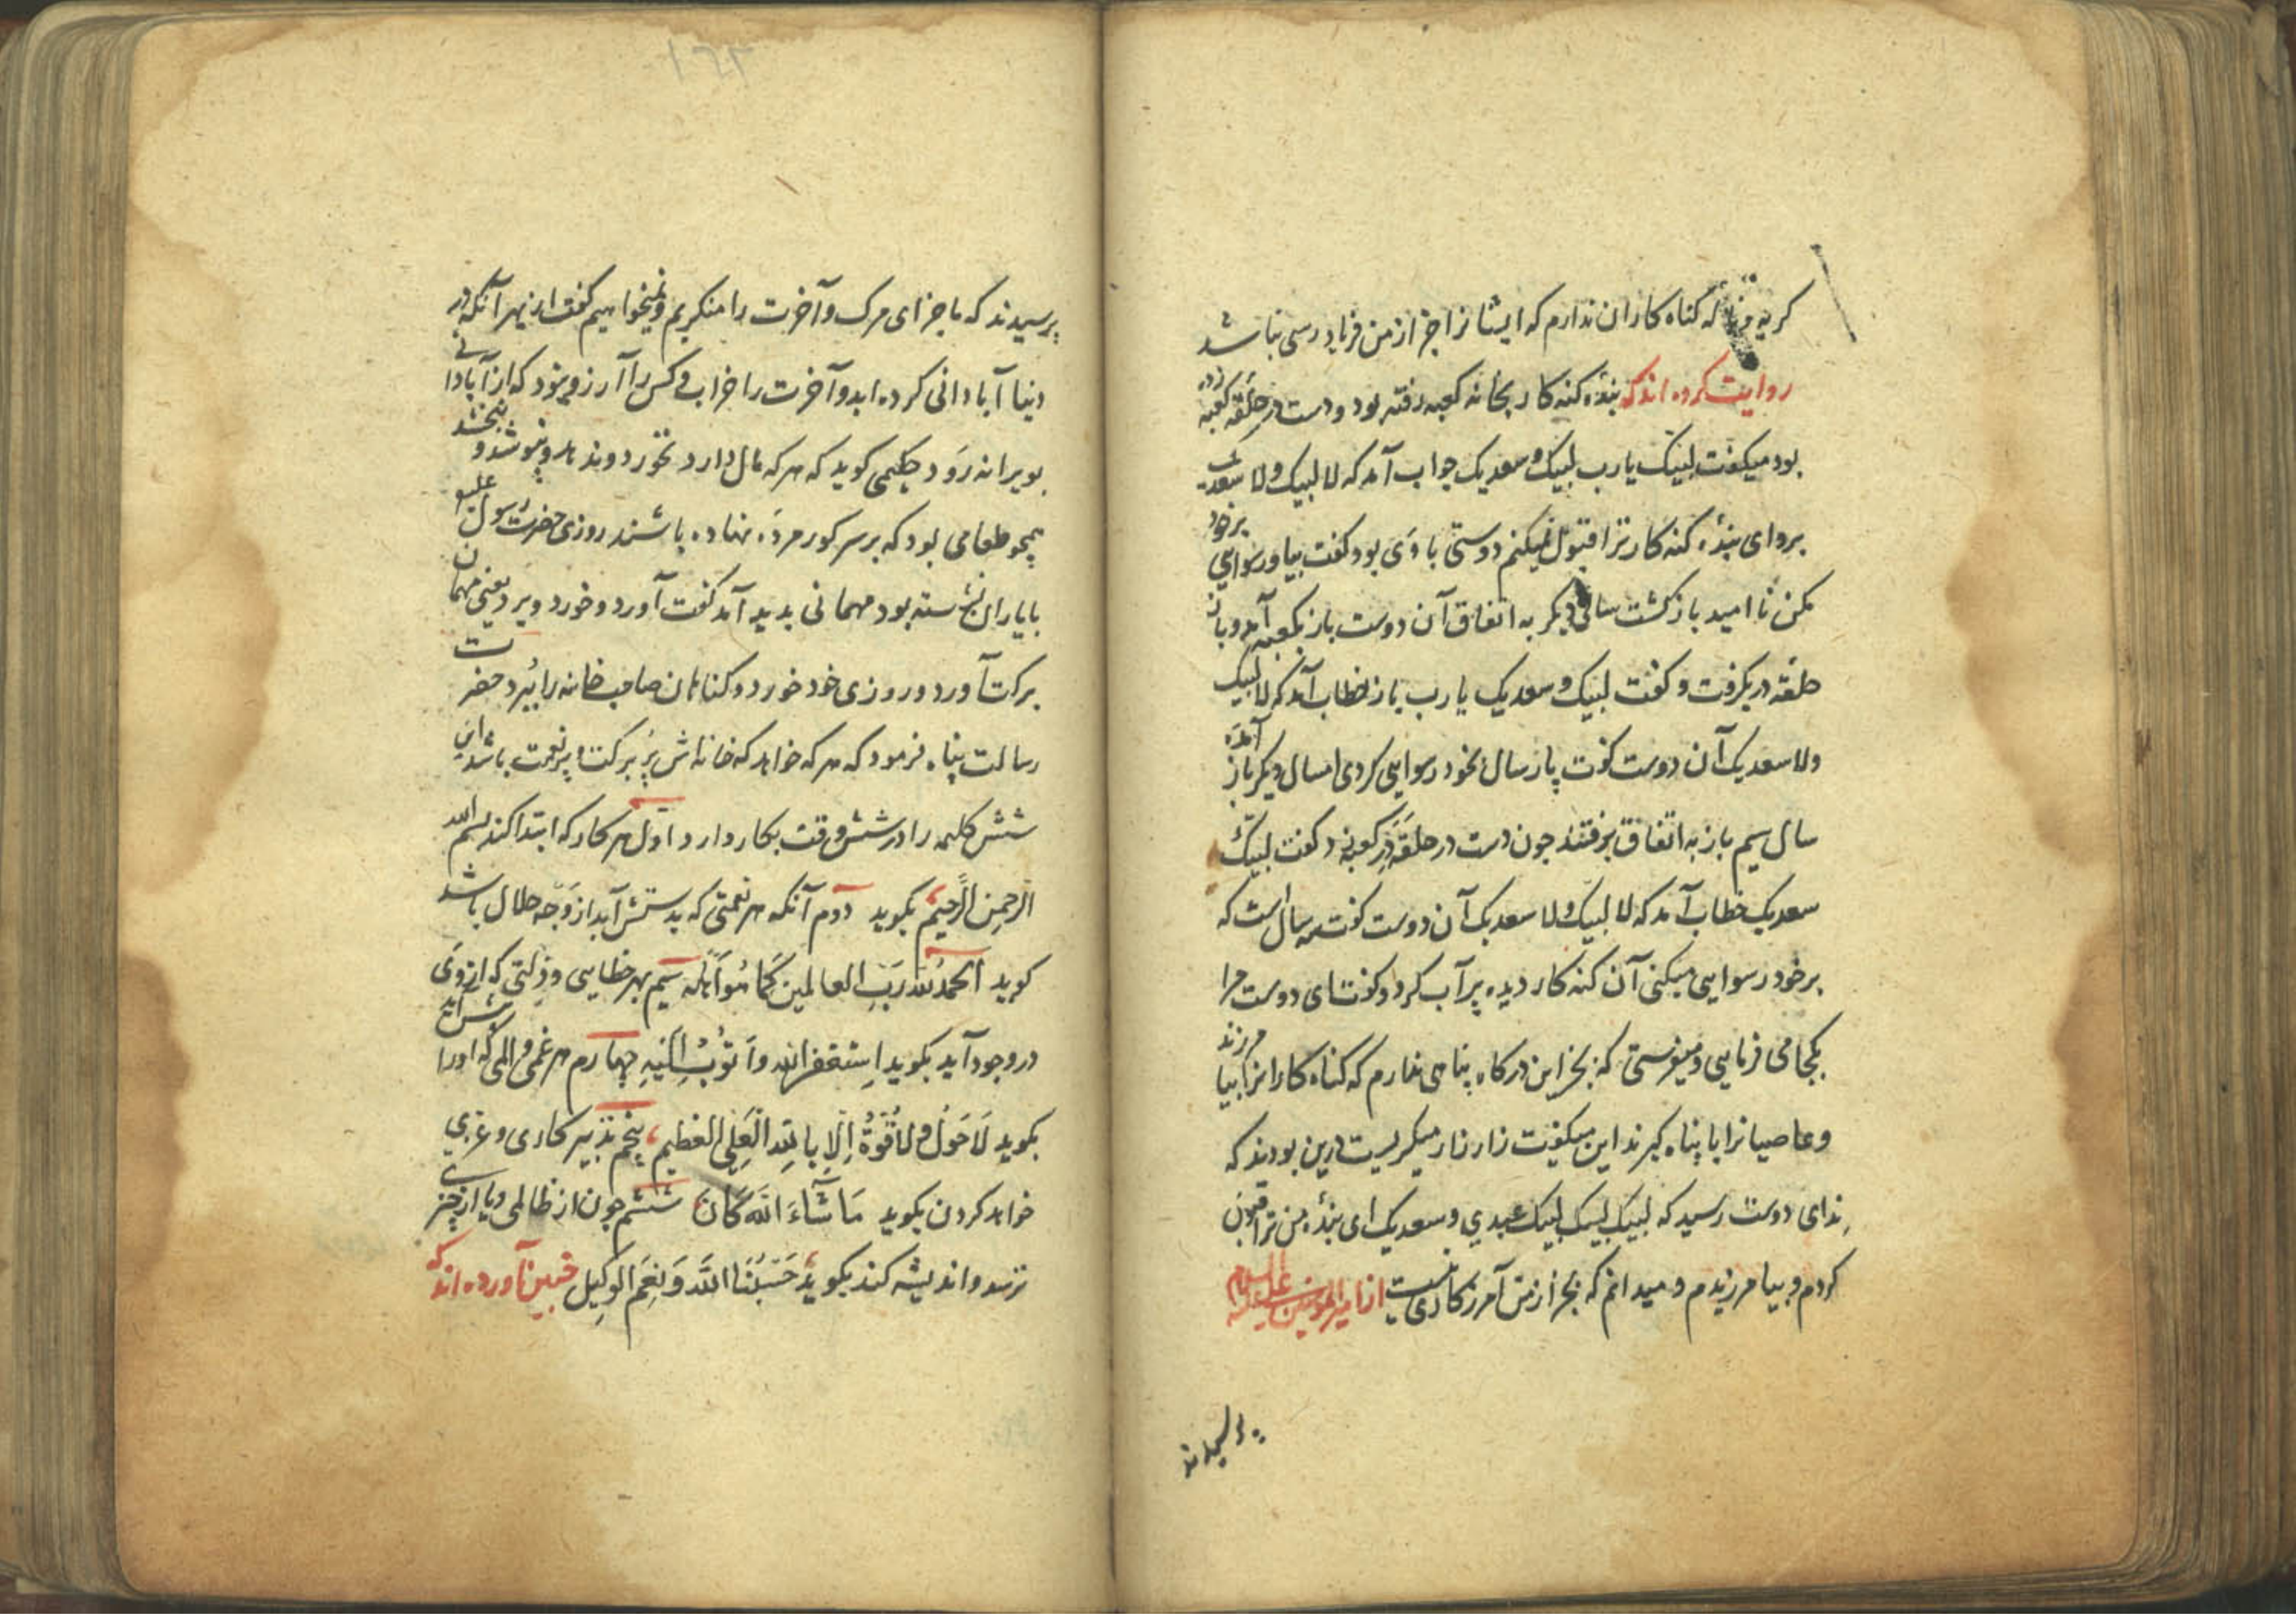 گریه و ناله گناه کاران ندارم که ایشانرا جز از من فریاد رسی نباشد
روایت کرده اند که بندهٔ گنه کار بخانه کعبه رفته بود و دست در حلقهٔ کعبه زده
بود میگفت لبیک یا رب لبیک و سعدیک جواب آمد که لا لبیک و لا سعدیک
برو ای بندهٔ گنه کار ترا قبول نمیکنم دوستی با وی بود گفت بیا و رسوایی بر خود
مکن نا امید بازگشت سالی دیگر به اتفاق آن دوست باز بکعبه آمد و باز
حلقه در بگرفت و گفت لبیک و سعدیک یا رب باز خطاب آمد که لا لبیک
ولا سعدیک آن دوست گفت پار سال بخود رسوایی کردی امسال دیگر باز آمدهٔ
سال سیم باز به اتفاق برفتند چون دست در حلقه در کعبه زد گفت لبیک
سعدیک خطاب آمد که لا لبیک ولا سعدیک آن دوست گفت سه سال است که
بر خود رسوایی میکنی آن گنه کار دیده پر آب کرد و گفت ای دوست مرا
بکجا می فرمایی و میفرستی که بجز این درگاه پناهی ندارم که گناه کارانرا بیامرزند
و عاصیانرا با پناه گیرند این میگفت زار زار میگریست درین بودند که
ندای دوست رسید که لبیک لبیک لبیک عبدی و سعدیک ای بندهٔ من ترا قبول
کردم و بیامرزیدم و میدانم که بجز از من آمرزگاری نیست از امیر المومنین علیه السلام
پرسیدند
۱۶۳
پرسیدند که ما جزای مرک و آخرت را منکریم و نمیخواهیم گفت از بهر آنکه در
دنیا آبادانی کرده اید و آخرت را خراب و کس را آرزو نبود که از آبادانی
بویرانه رود حکیمی گوید که هر که مال دارد نخورد و ندهد و نپوشد و نبخشد
همچو طعامی بود که بر سر گور مرده نهاده باشند روزی حضرت رسول علیه
با یاران نشسته بود مهمانی بدید آمد گفت آورد و خورد و برد یعنی مهمان
برکت آورد و روزی خود خورد و گناهان صاحب خانه را ببرد حضرت
رسالت پناه فرمود که هر که خواهد که خانه اش پر برکت و پر نعمت باشد این
شش کلمه را در شش وقت بکار دارد اول هر کار که ابتدا کند بسم الله
الرحمن الرحیم بگوید دوم آنکه هر نعمتی که بدستش آید از وجه حلال باشد
گوید الحمد لله رب العالمین کما هو اهله سیم بهر خطایی و زلتی که از وی
در وجود آید بگوید استغفر الله و اتوب الیه چهارم هر غمی و المی که او را پیش آید
بگوید لا حول و لا قوة الا بالله العلی العظیم پنجم تدبیر کاری و غربی
خواهد کردن بگوید ما شاء الله کان ششم چون از ظالمی و یا از چیزی
ترسد و اندیشه کند بگوید حسبنا الله و نعم الوکیل چنین آورده اند که